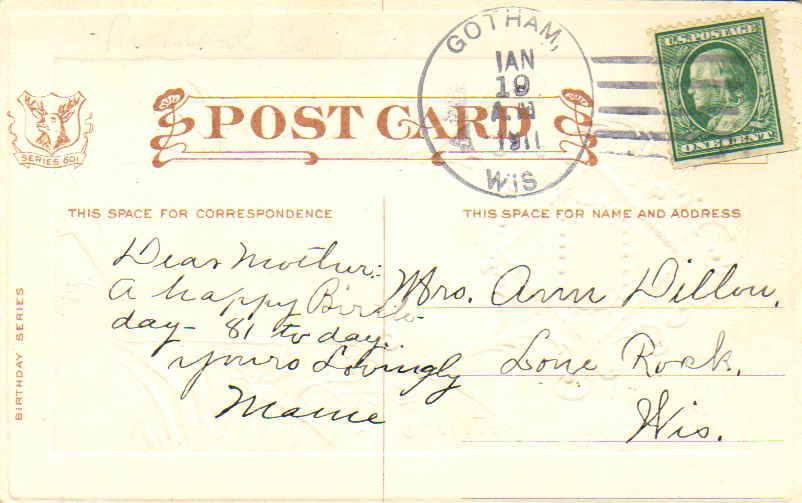 GOTHAM,
JAN
19
A.M
1911
WIS
U.S. POSTAGE
ONE CENT
POST CARD
SERIES 601
THIS SPACE FOR CORRESPONDENCE
THIS SPACE FOR NAME AND ADDRESS
BIRTHDAY SERIES
Dear Mother:-
A happy Birth
day - 81 to day.
Yours Lovingly
Mame
Mrs. Ann Dillon,
Lone Rock,
Wis.